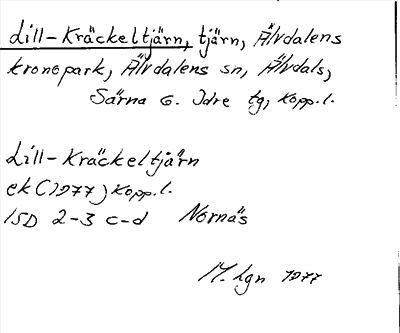 Lill-Kräckeltjärn, tjärn, Älvdalens
kronopark, Älvdalens sn, Älvdals,
Särna o. Idre tg, Kopp.l.
Lill-Kräckeltjärn
ek (1977) Kopp.l.
15D 2-3 c-d Nornäs
M. Lgn 1977